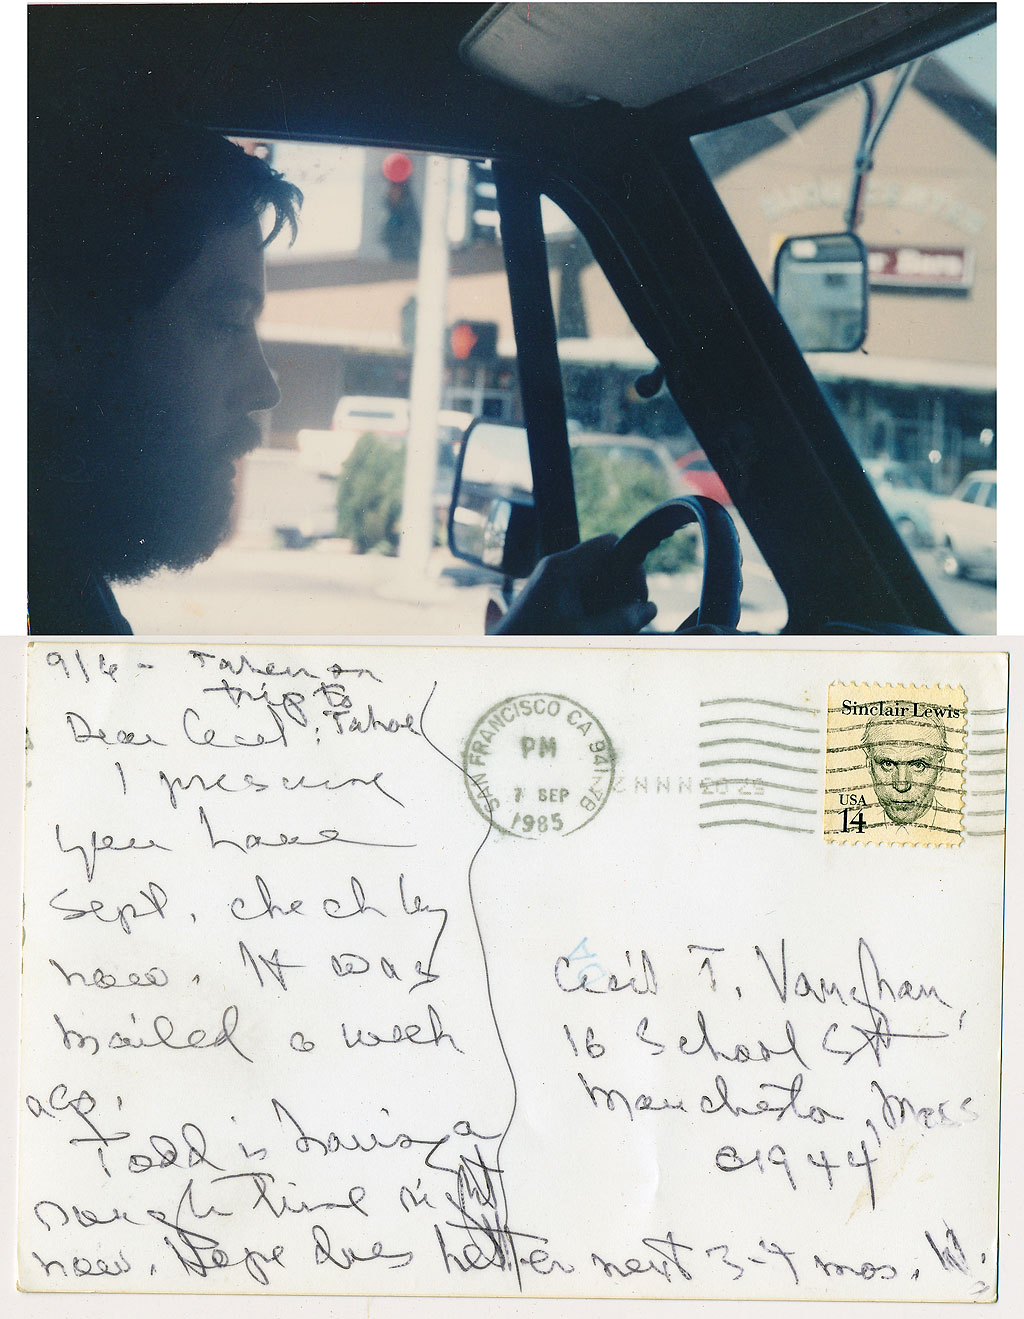 9/6 - Taken on
trip to
Tahoe
Dear Cecil:
I presume
you have
Sept. check by
now. It was
mailed a week
ago.
Todd is having a
rough time right
now. Hope does better next 3-4 mos. W.
SAN FRANCISCO CA 941
PM
7 SEP
1985
Sinclair Lewis
USA
14
Cecil T. Vaughan,
16 School St
Manchester, Mass
01944